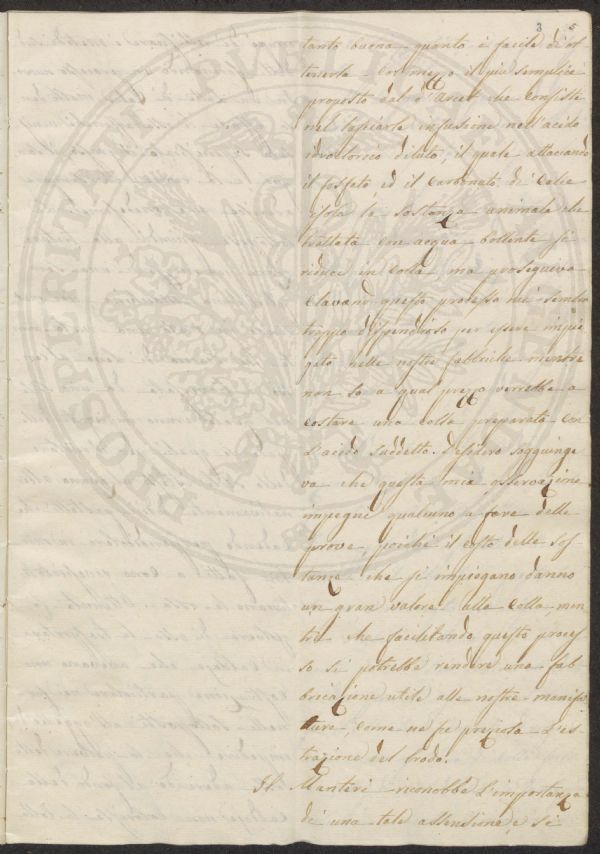 3 5
tanto buona quanto è facile di ot
tenerla col mezzo il più semplice
proposto dal d'Arcet che consiste
nel lasciarle infusione nell'acido
idroclorico diluto, il quale attaccando
il fosfato ed il Carbonato di Calce
isola la sostanza animale che
trattata con acqua bollente si
riduce in Colla, ma proseguiva
Clavand questo processo mi sembra
troppo dispendioso per essere impie
gato nelle nostre fabbriche mentre
non so a qual prezzo verrebbe a
costare una Colla preparata con
l'acido suddetto. Desidero soggiunge
va che questa mia osservazione
impegni qualcuno a fare delle
prove, poichè il costo delle sos
tanze che si impiegano danno
un gran valore alla Colla men
tre che facilitando questo proces
so si potrebbe rendere una fab
bricazione utile alle nostre manifat
ture, come ne fu preposta l'es
trazione del brodo.
Il Manteri riconobbe l'importanza
di una tale assenzione e si
PROSPERITATI PUBLICAE